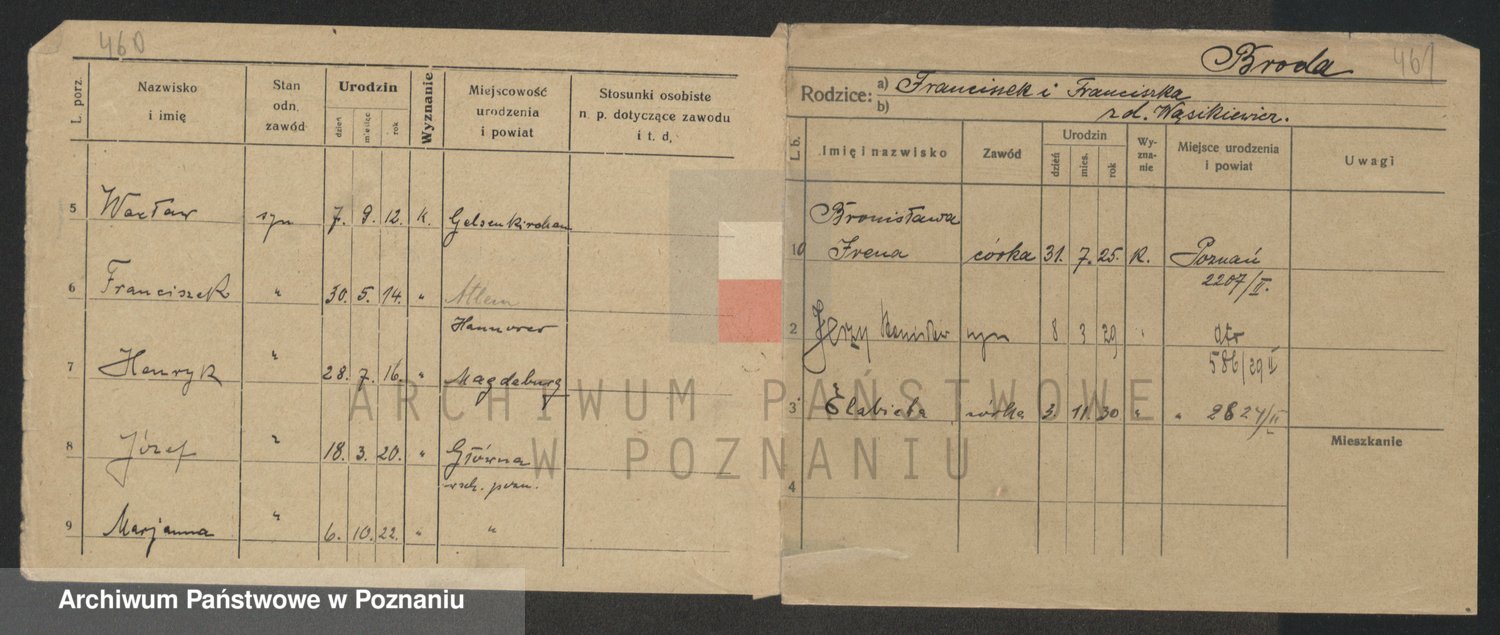 460
L. porz.
Nazwisko
i imię
Stan
odn.
zawód
Urodzin
dzień
miesiąc
rok
Wyznanie
Miejscowość
urodzenia
i powiat
Stosunki osobiste
n p. dotyczące zawodu
i t. d,
5 Wacław syn 7. 9. 12. K. Gelsenkirchen
6 Franciszek " 30. 5. 14. " Ahlem
Hannover
7 Henryk " 28. 7. 16. " Magdeburg
8 Józef " 18. 3. 20. " Główna
wsch. pozn.
9 Marjanna " 6. 10. 22. " "
Broda
461
Rodzice: a) Franciszek i Franciszka
b) z d. Wąsikiewicz.
L. b.
Imię i nazwisko
Zawód
Urodzin
dzień
mies.
rok
Wy-
zna-
nie
Miejsce urodzenia
i powiat
Uwagi
Bronisława
10 Irena córka 31. 7. 25. K. Poznań
2207/II.
2 Jerzy Stanisław syn 8 3 29
586/29 II
3 Elżbieta córka 3. 11. 30 " " 2827/II
Mieszkanie
4
ARCHIWUM PAŃSTWOWE
W POZNANIU
Archiwum Państwowe w Poznaniu